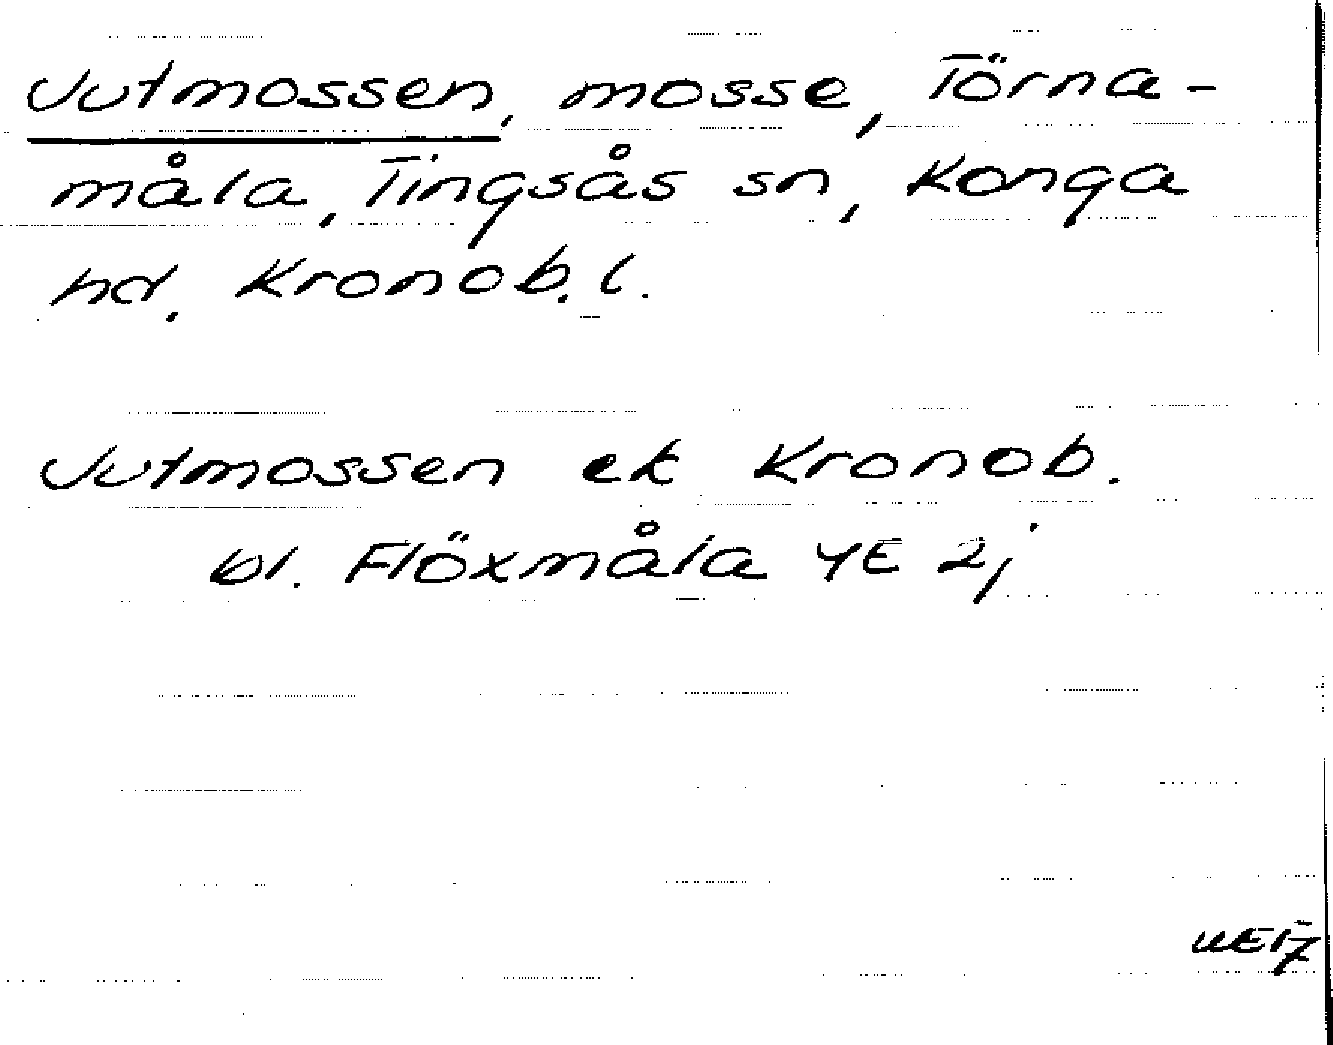 Jutmossen, mosse, Törna-
måla, Tingsås sn, Konga
hd. Kronob. l.
Jutmossen ek Kronob.
bl. Flöxmåla 4E 2j